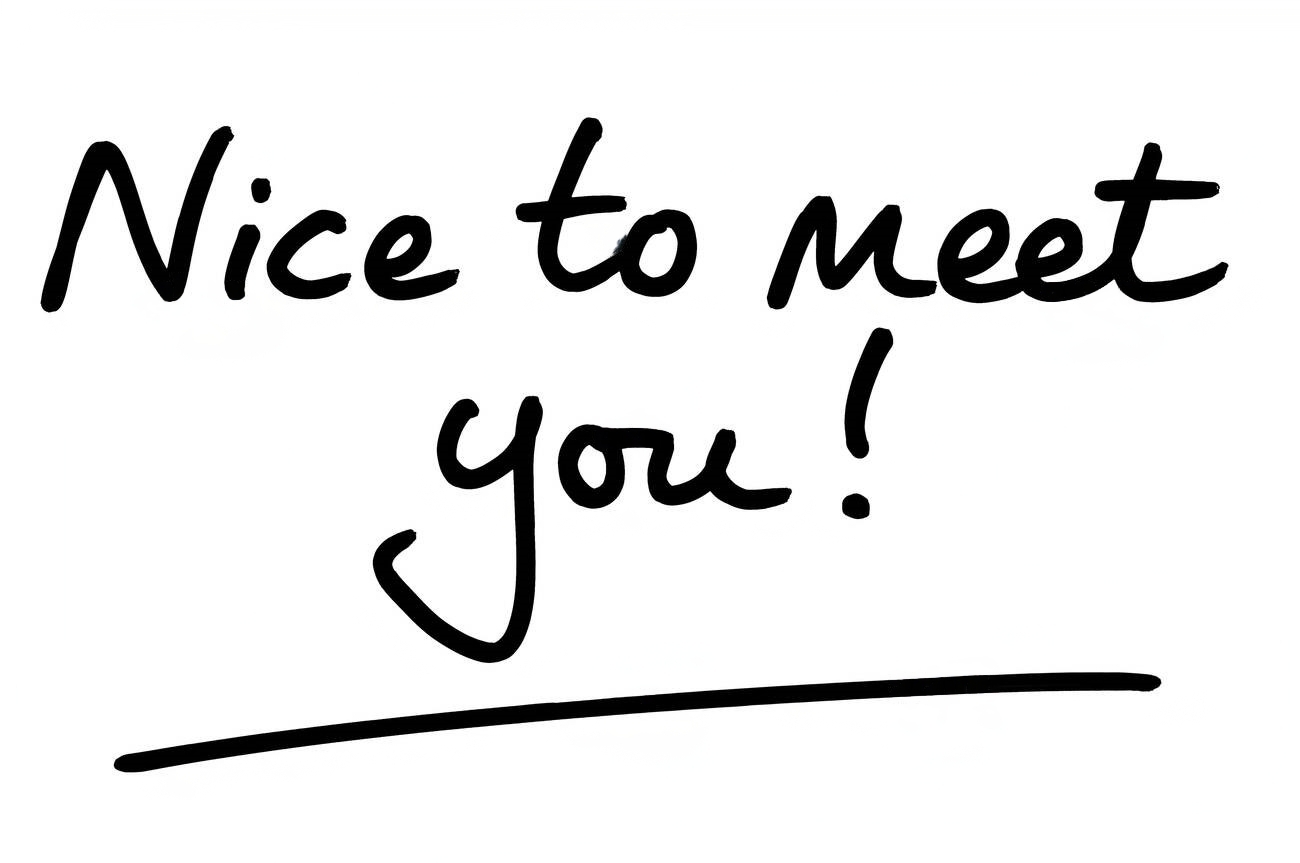 Nice to meet
you!